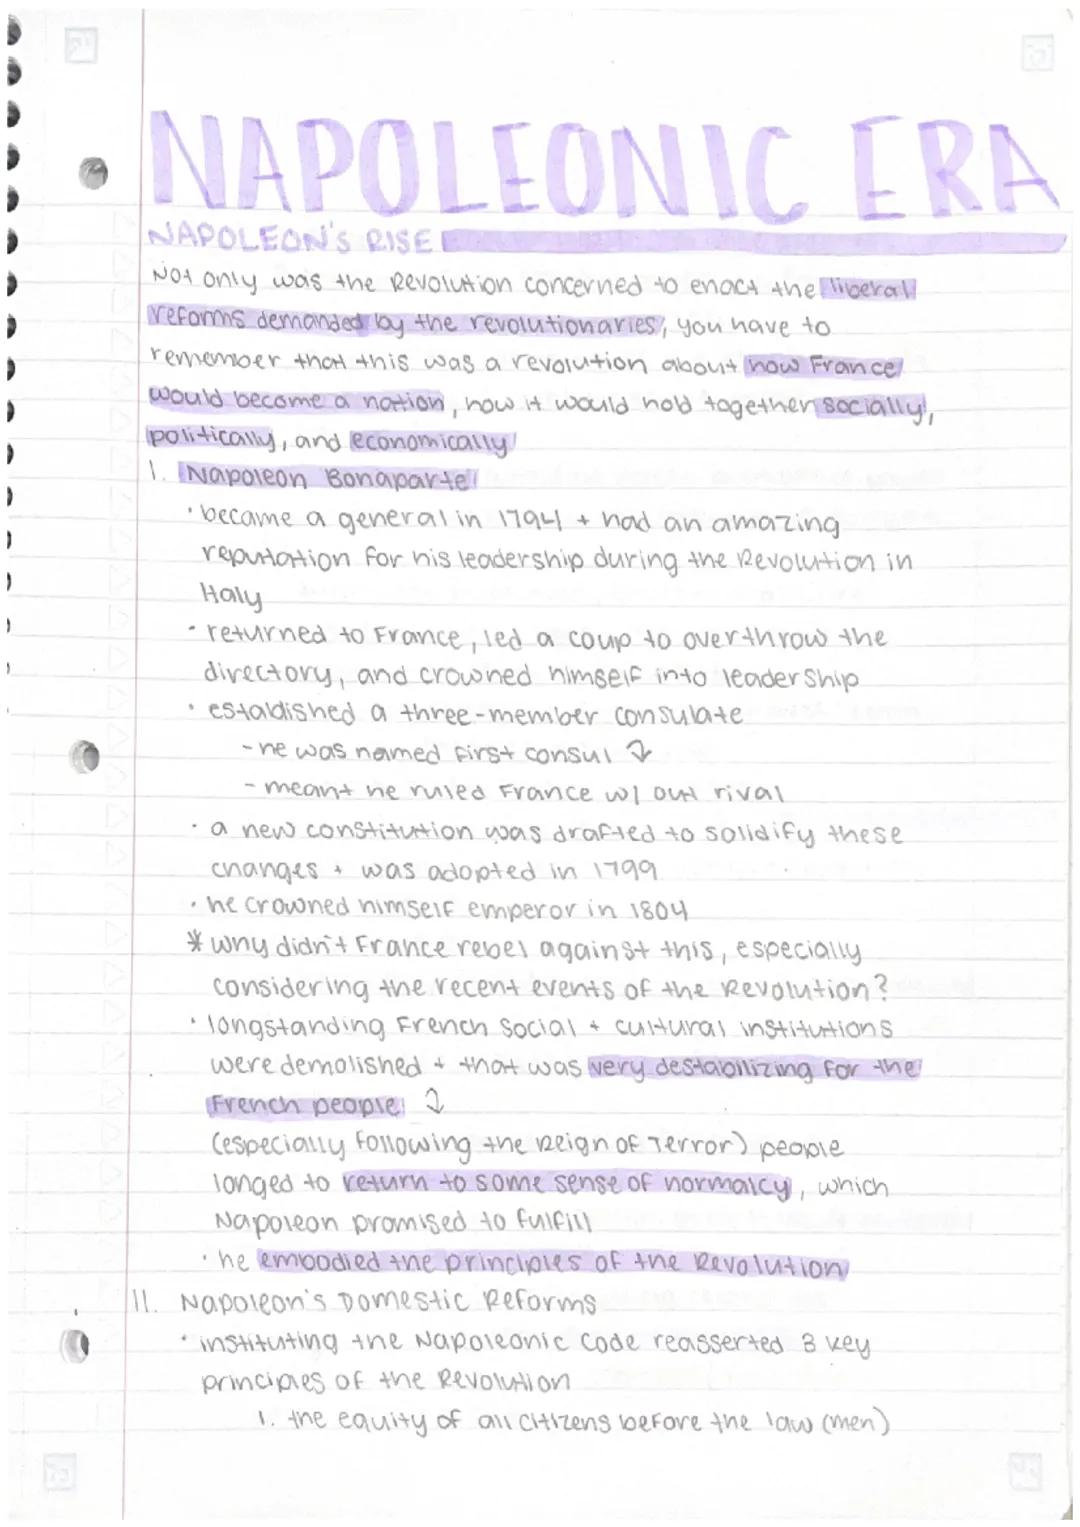 NAPOLEONIC ERA
NAPOLEON'S RISE
Not only was the Revolution concerned to enact the liberal
reforms demanded by the revolutionaries, you have to
remember that this was a revolution about how France
would become a nation, how it would hold together socially,
politically, and economically
I. Napoleon Bonaparte
• became a general in 1794 + had an amazing
reputation for his leadership during the Revolution in
Italy
• returned to France, led a coup to overthrow the
directory, and crowned himself into leadership
• established a three-member consulate
- he was named first consul ↓
- meant he ruled France w/ out rival
• a new constitution was drafted to solidify these
changes + was adopted in 1799
• he crowned himself emperor in 1804
* why didn't France rebel against this, especially
considering the recent events of the Revolution?
• longstanding French social + cultural institutions
were demolished + that was very destabilizing for the
French people ↓
(especially following the Reign of Terror) people
longed to return to some sense of normalcy, which
Napoleon promised to fulfill
• he embodied the principles of the Revolution
II. Napoleon's Domestic Reforms
• instituting the Napoleonic Code reasserted 3 key
principles of the Revolution
1. the equity of all citizens before the law (men)